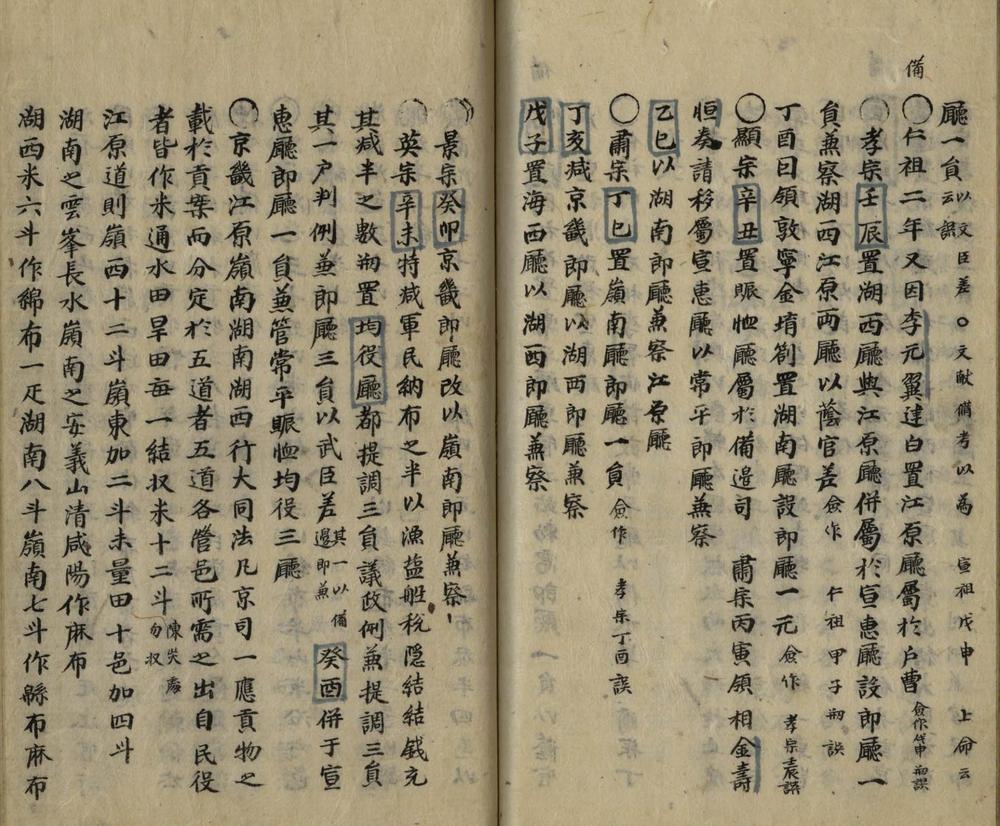 備
廳一員以文臣差○文献備考以爲 宣祖戊申 上命云云誤
○仁祖二年又因李元翼建白置江原廳屬於户曹僉作戊申刱誤
○孝宗壬辰置湖西廳與江原廳併屬於宣惠廳設郎廳一
員兼察湖西江原兩廳以蔭官差僉作 仁祖甲子刱誤
丁酉因領敦寧金堉箚置湖南廳設郎廳一元僉作 孝宗壬辰誤
○顯宗辛丑置賑恤廳屬於備邊司 肅宗丙寅領相金壽
恒奏請移屬宣惠廳以常平郎廳兼察
乙巳以湖南郎廳兼察江原廳
○肅宗丁巳置嶺南廳郎廳一員僉作 孝宗丁酉誤
丁亥减京畿郎廳以湖西郎廳兼察
戊子置海西廳以湖西郎廳兼察
○景宗癸卯京畿郎廳改以嶺南郎廳兼察
○英宗辛未特减軍民納布之半以漁盐船税隐結結錢充
其减半之數刱置均役廳都提調三員議政例兼提調三員
其一户判例兼郎廳三員以武臣差其一以備邊郎兼癸酉併于宣
惠廳郎廳一員兼管常平賑恤均役三廳
○京畿江原嶺南湖南湖西行大同法凡京司一應貢物之
載於貢案而分定於五道者五道各營邑所需之出自民役
者皆作米通水田旱田每一結収米十二斗陳灾處勿収
江原道則嶺西十二斗嶺東加二斗未量田十邑加四斗
湖南之雲峯長水嶺南之安義山清咸陽作麻布
湖西米六斗作綿布一疋湖南八斗嶺南七斗作緜布麻布